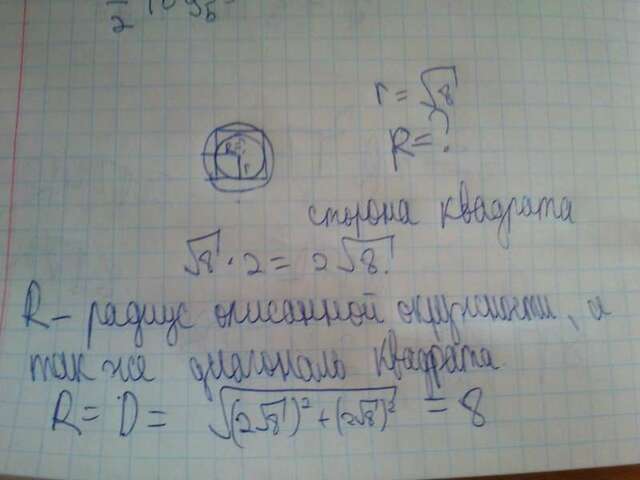 r = √8
R = ?
сторона квадрата
√8 · 2 = 2√8.
R – радиус описанной окружности, а
так же диагональ квадрата.
R = D = √(2√8)² + (2√8)² = 8